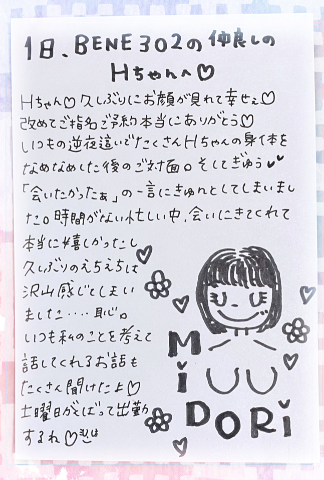 1日、BENE302の仲良しの
Hちゃんへ♡
Hちゃん♡久しぶりにお顔が見れて幸せ♡
改めてご指名ご予約本当にありがとう♡
いつもの逆夜這いでたくさんHちゃんの身体を
なめなめした後のご対面。そしてぎゅう♥♥
「会いたかったぁ」の一言にきゅんとしてしまいまし
た。時間がない忙しい中、会いにきてくれて
本当に嬉しかったし
久しぶりのえちえちは
沢山感じてしまい
ました‥‥恥。
いつも私のことを考えて
話してくれるお話も
たくさん聞けたよ♡
土曜日がんばって出勤
するね♡
MiDORi